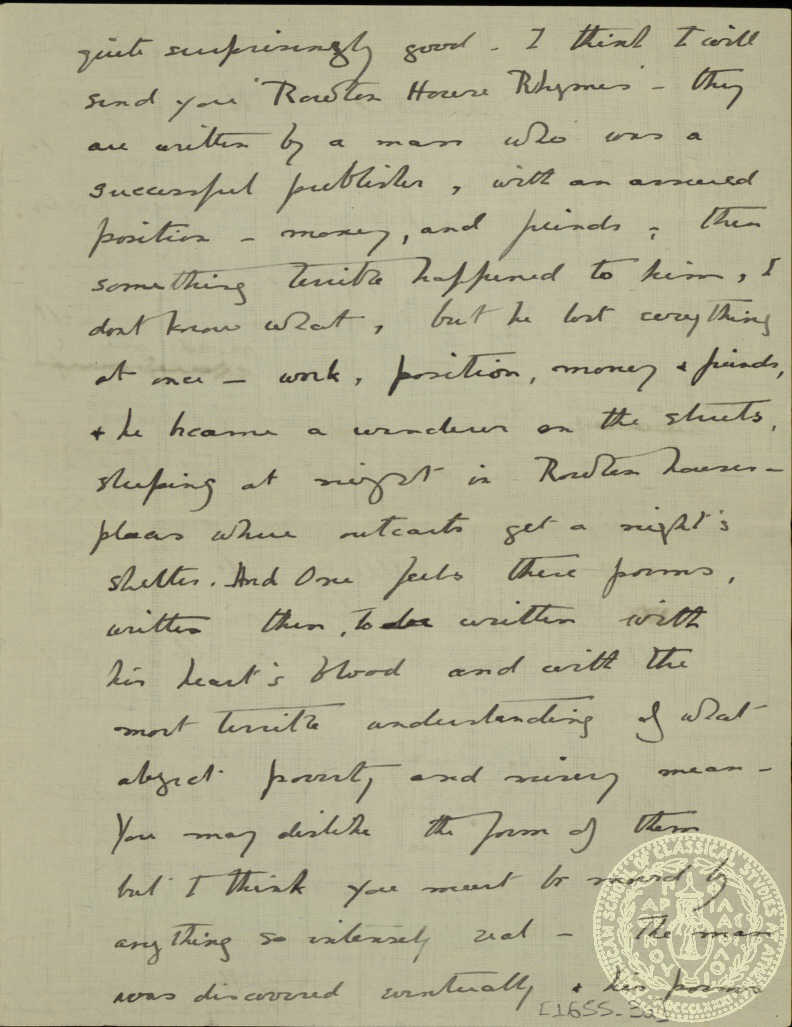 quite surprisingly good - I think I will
send you "Rowton House Rhymes" - they
are written by a man who was a
successful publisher, with an assured
position - money, and friends; then
something terrible happened to him, I
dont know what, but he lost everything
at once - work, position, money & friends,
& he became a wanderer on the streets,
sleeping at night in Rowton houses -
places where outcasts get a night's
shelter. And One feels these poems,
written then, to be written with
his heart's blood and with the
most terrible understanding of what
abject poverty and misery mean -
You may dislike the form of them
but I think you must be moved by
anything so intensely real - The man
was discovered eventually & his poems
[1655-32]
AMERICAN SCHOOL OF CLASSICAL STUDIES AT ATHENS